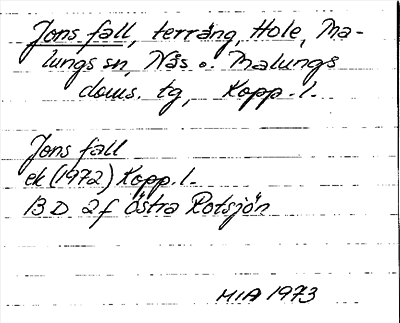 Jons fall, terräng, Hole, Ma-
lungs sn, Nås o. Malungs
doms. tg, Kopp. l.
Jons fall
ek (1972) Kopp. l.
13 D 2f Östra Rotsjön
MIA 1973